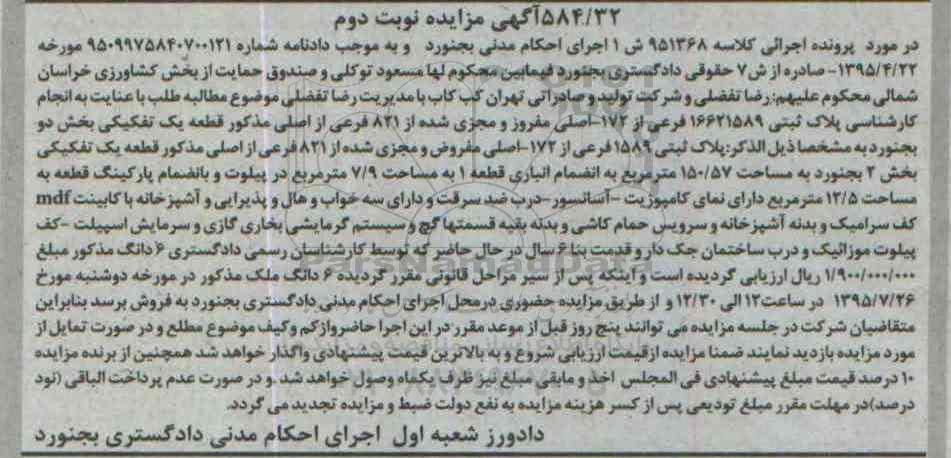 ۵۸۴/۳۲آگهی مزایده نوبت دوم
در مورد پرونده اجرائی کلاسه ۹۵۱۳۶۸ ش ۱ اجرای احکام مدنی بجنورد و به موجب دادنامه شماره ۹۵۰۹۹۷۵۸۴۰۷۰۰۱۲۱ مورخه
۱۳۹۵/۴/۲۲- صادره از ش۷ حقوقی دادگستری بجنورد فیمابین محکوم لها مسعود توکلی و صندوق حمایت از بخش کشاورزی خراسان
شمالی محکوم علیهم: رضا تفضلی و شرکت تولید و صادراتی تهران کب کاب با مدیریت رضا تفضلی موضوع مطالبه طلب با عنایت به انجام
کارشناسی پلاک ثبتی ۱۶۶۲۱۵۸۹ فرعی از ۱۷۲-اصلی مفروز و مجزی شده از ۸۲۱ فرعی از اصلی مذکور قطعه یک تفکیکی بخش دو
بجنورد به مشخصا ذیل الذکر: پلاک ثبتی ۱۵۸۹ فرعی از ۱۷۲-اصلی مفروض و مجزی شده از ۸۲۱ فرعی از اصلی مذکور قطعه یک تفکیکی
بخش ۲ بجنورد به مساحت ۱۵۰/۵۷ مترمربع به انضمام انباری قطعه ۱ به مساحت ۷/۹ مترمربع در پیلوت و بانضمام پارکینگ قطعه به
مساحت ۱۲/۵ مترمربع دارای نمای کامپوزیت -آسانسور-درب ضد سرقت و دارای سه خواب و هال و پذیرایی و آشپزخانه با کابینت mdf
کف سرامیک و بدنه آشپزخانه و سرویس حمام کاشی و بدنه بقیه قسمتها گچ و سیستم گرمایشی بخاری گازی و سرمایش اسپیلت -کف
پیلوت موزائیک و درب ساختمان جک دار و قدمت بنا ۶ سال در حال حاضر که توسط کارشناسان رسمی دادگستری ۶ دانگ مذکور مبلغ
۱/۹۰۰/۰۰۰/۰۰۰ ریال ارزیابی گردیده است و اینکه پس از سیر مراحل قانونی مقرر گردیده ۶ دانگ ملک مذکور در مورخه دوشنبه مورخ
۱۳۹۵/۷/۲۶ در ساعت۱۲ الی ۱۲/۳۰ و از طریق مزایده حضوری درمحل اجرای احکام مدنی دادگستری بجنورد به فروش برسد بنابراین
متقاضیان شرکت در جلسه مزایده می توانند پنج روز قبل از موعد مقرر در این اجرا حاضر واز کم وکیف موضوع مطلع و در صورت تمایل از
مورد مزایده بازدید نمایند ضمنا مزایده ازقیمت ارزیابی شروع و به بالاترین قیمت پیشنهادی واگذار خواهد شد همچنین از برنده مزایده
۱۰ درصد قیمت مبلغ پیشنهادی فی المجلس اخذ و مابقی مبلغ نیز ظرف یکماه وصول خواهد شد .و در صورت عدم پرداخت الباقی (نود
درصد)در مهلت مقرر مبلغ تودیعی پس از کسر هزینه مزایده به نفع دولت ضبط و مزایده تجدید می گردد.
دادورز شعبه اول اجرای احکام مدنی دادگستری بجنورد